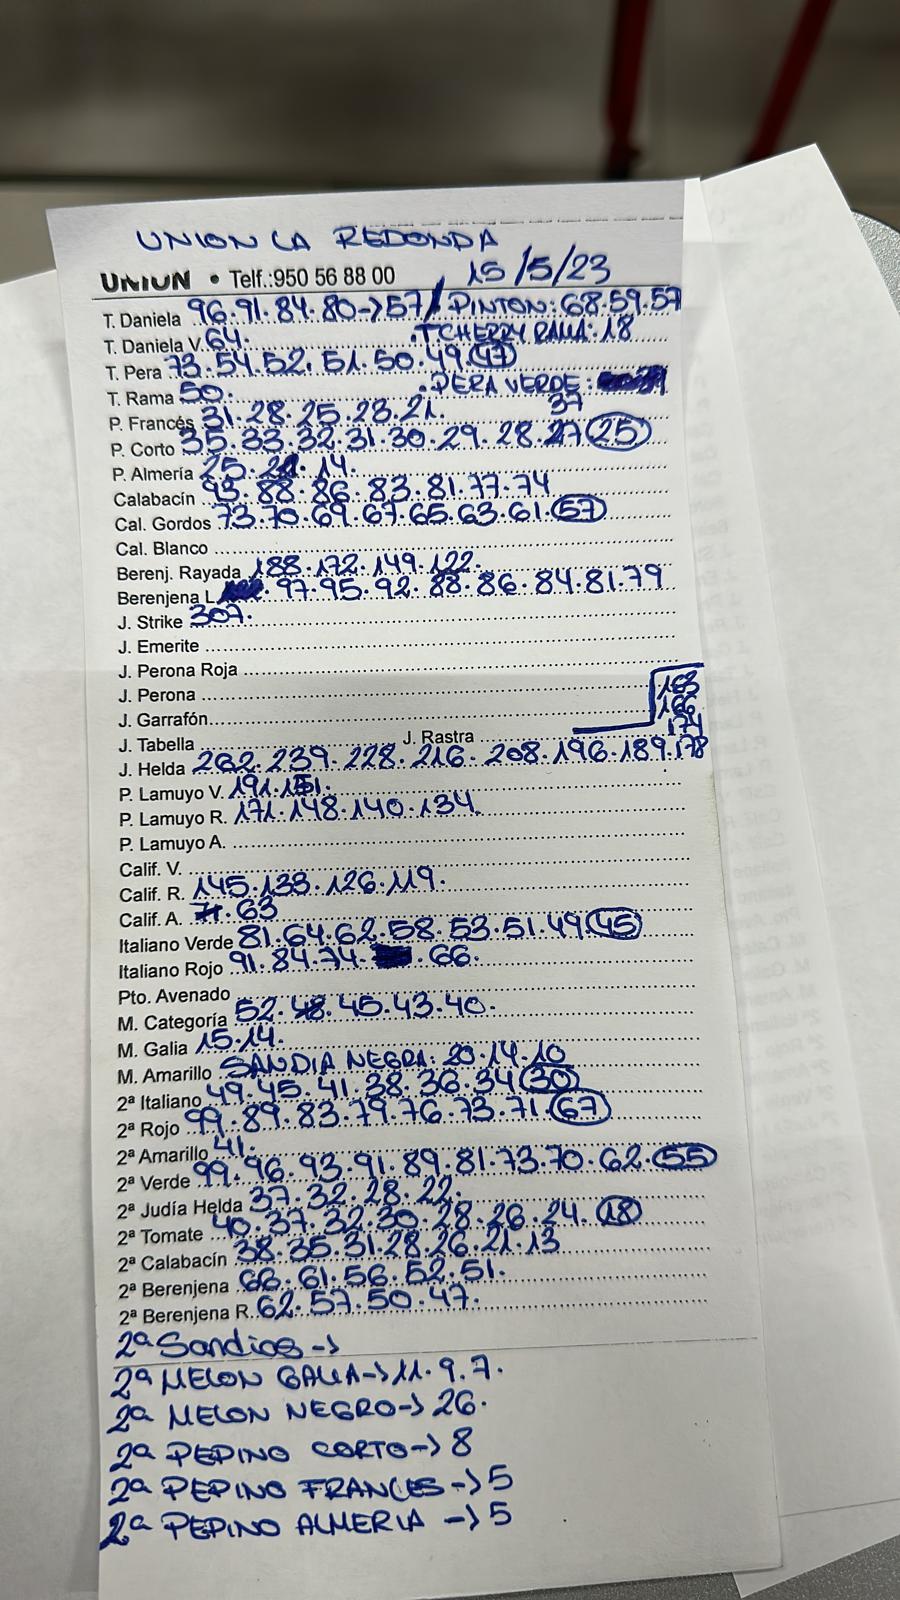 UNION LA REDONDA
UNION • Telf.:950 56 88 00 15/5/23
T. Daniela 96.91.84.80->57 / PINTON: 68.59.57
T. Daniela V. 64. .TCHERRY RAMA: 18
T. Pera 73.54.52.51.50.49.(47)
T. Rama 50. .PERA VERDE:
37
P. Francés 31.28.25.23.21.
P. Corto 35.33.32.31.30.29.28.27(25)
P. Almería 25. .14.
Calabacín 93.88.86.83.81.77.74
Cal. Gordos 73.70.69.67.65.63.61.(57)
Cal. Blanco
Berenj. Rayada 188.172.149.122.
Berenjena L .97.95.92.88.86.84.81.79
J. Strike 307.
J. Emerite
J. Perona Roja
J. Perona 163
J. Garrafón 166
J. Tabella J. Rastra 174
J. Helda 262.239.228.216.208.196.189.178
P. Lamuyo V. 191.151.
P. Lamuyo R. 171.148.140.134.
P. Lamuyo A.
Calif. V.
Calif. R. 145.133.126.119.
Calif. A. 71.63
Italiano Verde 81.64.62.58.53.51.49(45)
Italiano Rojo 91.84.74. .66.
Pto. Avenado
M. Categoría 52.48.45.43.40.
M. Galia 15.14.
M. Amarillo SANDIA NEGRA: 20.14.10
2ª Italiano 49.45.41.38.36.34(30)
2ª Rojo 99.89.83.79.76.73.71.(67)
2ª Amarillo 41.
2ª Verde 99.96.93.91.89.81.73.70.62.(55)
2ª Judía Helda 37.32.28.22.
2ª Tomate 40.37.32.30.28.26.24.(18)
2ª Calabacín 38.35.31.28.26.21.13
2ª Berenjena 66.61.56.52.51.
2ª Berenjena R. 62.57.50.47.
2ª Sandias ->
2ª MELON GALIA->11.9.7.
2ª MELON NEGRO->26.
2ª PEPINO CORTO->8
2ª PEPINO FRANCES->5
2ª PEPINO ALMERIA ->5